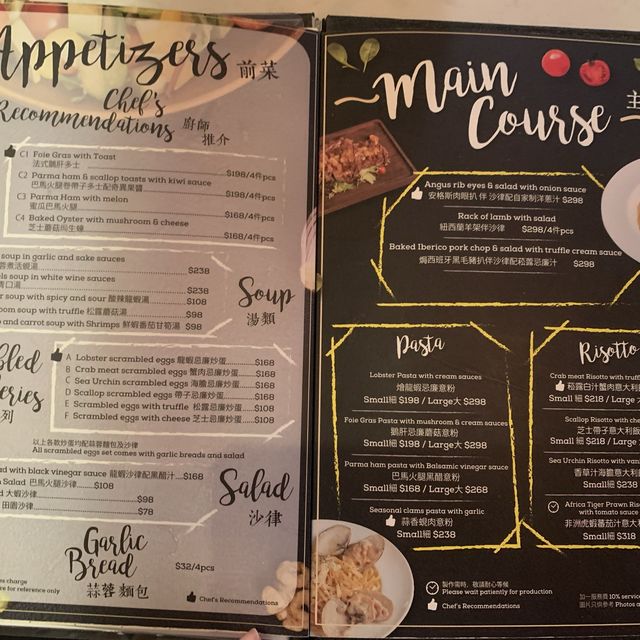 Appetizers 前菜
Chef's
Recommendations 廚師
推介
C1 Foie Gras with Toast
法式鵝肝多士 $198/4件pcs
C2 Parma ham & scallop toasts with kiwi sauce
巴馬火腿卷帶子多士配奇異果醬 $198/4件pcs
C3 Parma Ham with melon
蜜瓜巴馬火腿 $168/4件pcs
C4 Baked Oyster with mushroom & cheese
芝士蘑菇焗生蠔 $168/4件pcs
soup in garlic and sake sauces
蓉煮活蜆湯 $238
els soup in white wine sauces
青口湯 $238
r soup with spicy and sour 酸辣龍蝦湯 $108
oom soup with truffle 松露蘑菇湯 $98
o and carrot soup with Shrimps 鮮蝦番茄甘筍湯 $98
Soup
湯類
bled
eries
列
A Lobster scrambled eggs 龍蝦忌廉炒蛋 $168
B Crab meat scrambled eggs 蟹肉忌廉炒蛋 $168
C Sea Urchin scrambled eggs 海膽忌廉炒蛋 $168
D Scallop scrambled eggs 帶子忌廉炒蛋 $168
E Scrambled eggs with truffle 松露忌廉炒蛋 $108
F Scrambled eggs with cheese 芝士忌廉炒蛋 $108
以上各款炒蛋均配蒜蓉麵包及沙律
All scrambled eggs set comes with garlic breads and salad
ad with black vinegar sauce 龍蝦沙律配黑醋汁 $168
n Salad 巴馬火腿沙律 $108
d 大蝦沙律 $98
田園沙律 $78
Salad
沙律
Garlic
Bread
蒜蓉麵包 $32/4pcs
es charge
re for reference only
Chef's Recommendations
Main
Course 主
Angus rib eyes & salad with onion sauce
安格斯肉眼扒伴沙律配自家制洋蔥汁 $298
Rack of lamb with salad
紐西蘭羊架伴沙律 $298/4pcs
Baked Iberico pork chop & salad with truffle cream sauce
焗西班牙黑毛豬扒伴沙律配菘露忌廉汁 $298
Pasta
Lobster Pasta with cream sauces
燴龍蝦忌廉意粉
Small細 $198 / Large大 $298
Foie Gras Pasta with mushroom & cream sauces
鵝肝忌廉蘑菇意粉
Small細 $198 / Large大 $298
Parma ham pasta with Balsamic vinegar sauce
巴馬火腿黑醋意粉
Small細 $168 / Large大 $268
Seasonal clams pasta with garlic
蒜香蜆肉意粉
Small細 $238
Risotto
Crab meat Risotto with truff
菘露白汁蟹肉意大利
Small細 $218 / Large大
Scallop Risotto with che
芝士帶子意大利飯
Small細 $218 / Large大
Sea Urchin Risotto with van
香草汁海膽意大利
Small細 $238
Africa Tiger Prawn Riso
with tomato sauce
非洲虎蝦蕃茄汁意大
Small細 $318
製作需時，敬請耐心等候
Please wait patiently for production
Chef's Recommendations
加一服務費 10% service
圖片只供參考 Photos a